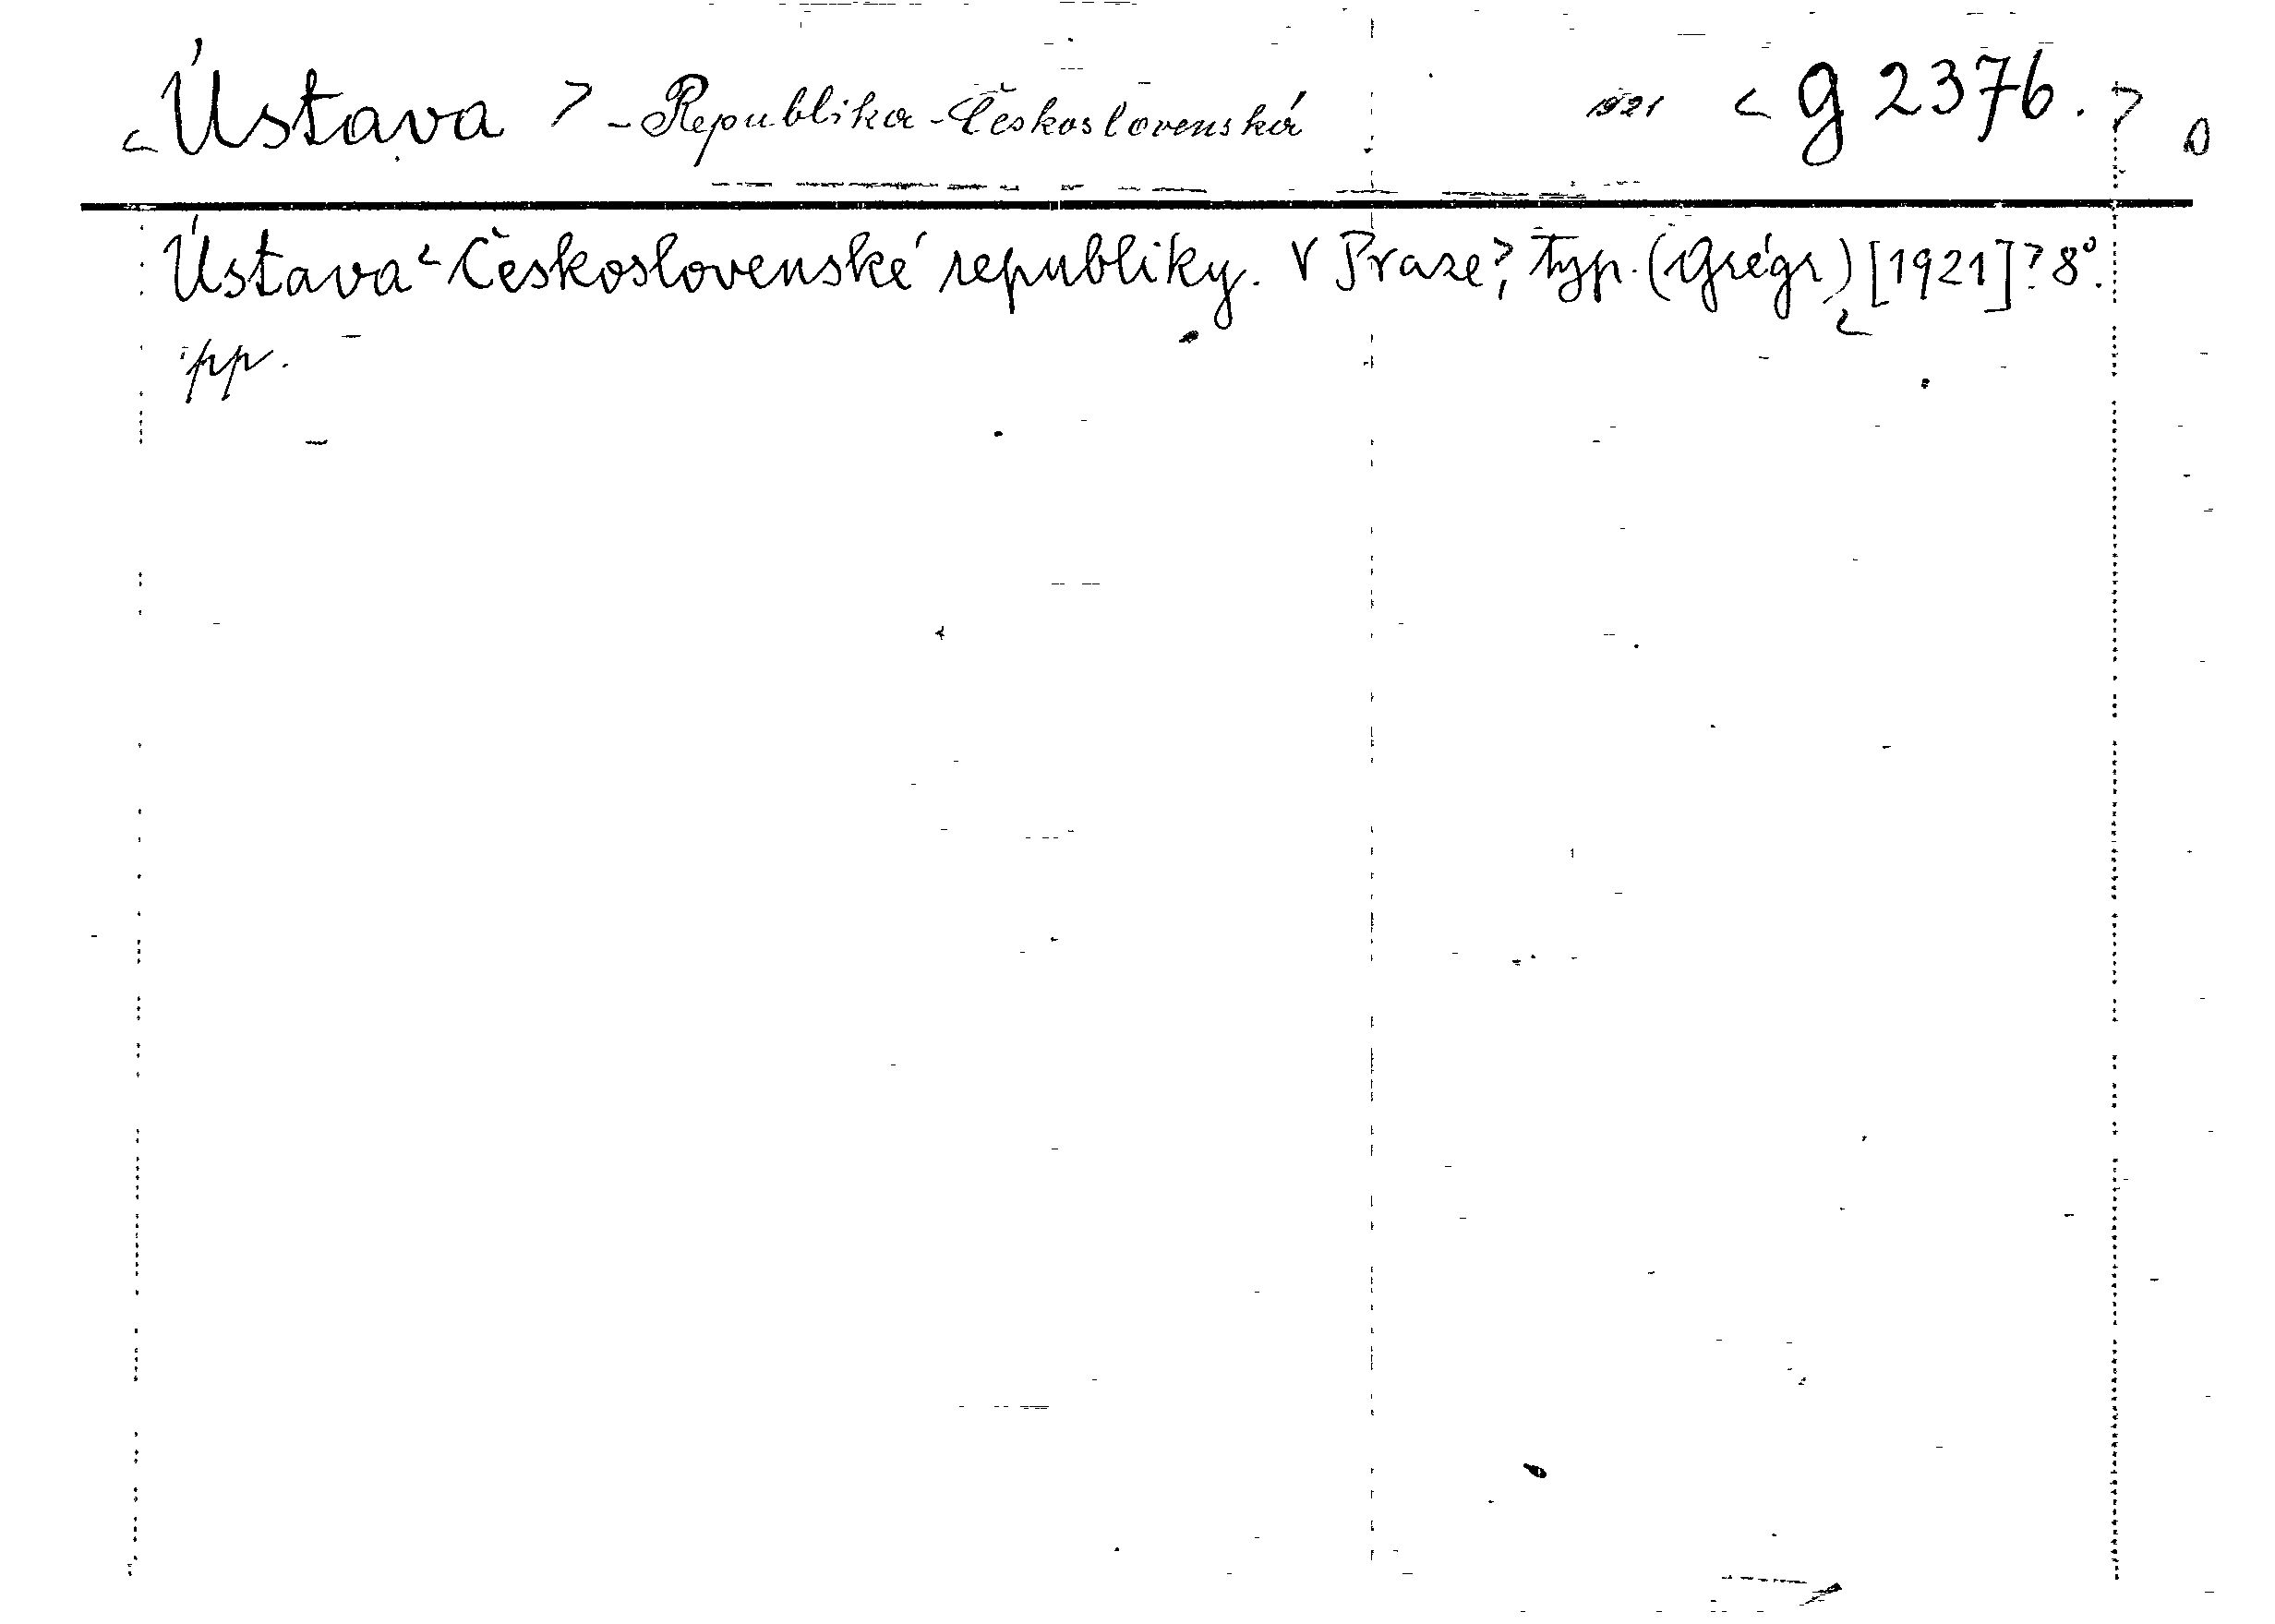 Ústava - Republika-Československá 1921 g 2376. 0
Ústava Československé republiky. V Praze, typ. (Grégr) [1921] 8°.
pp.